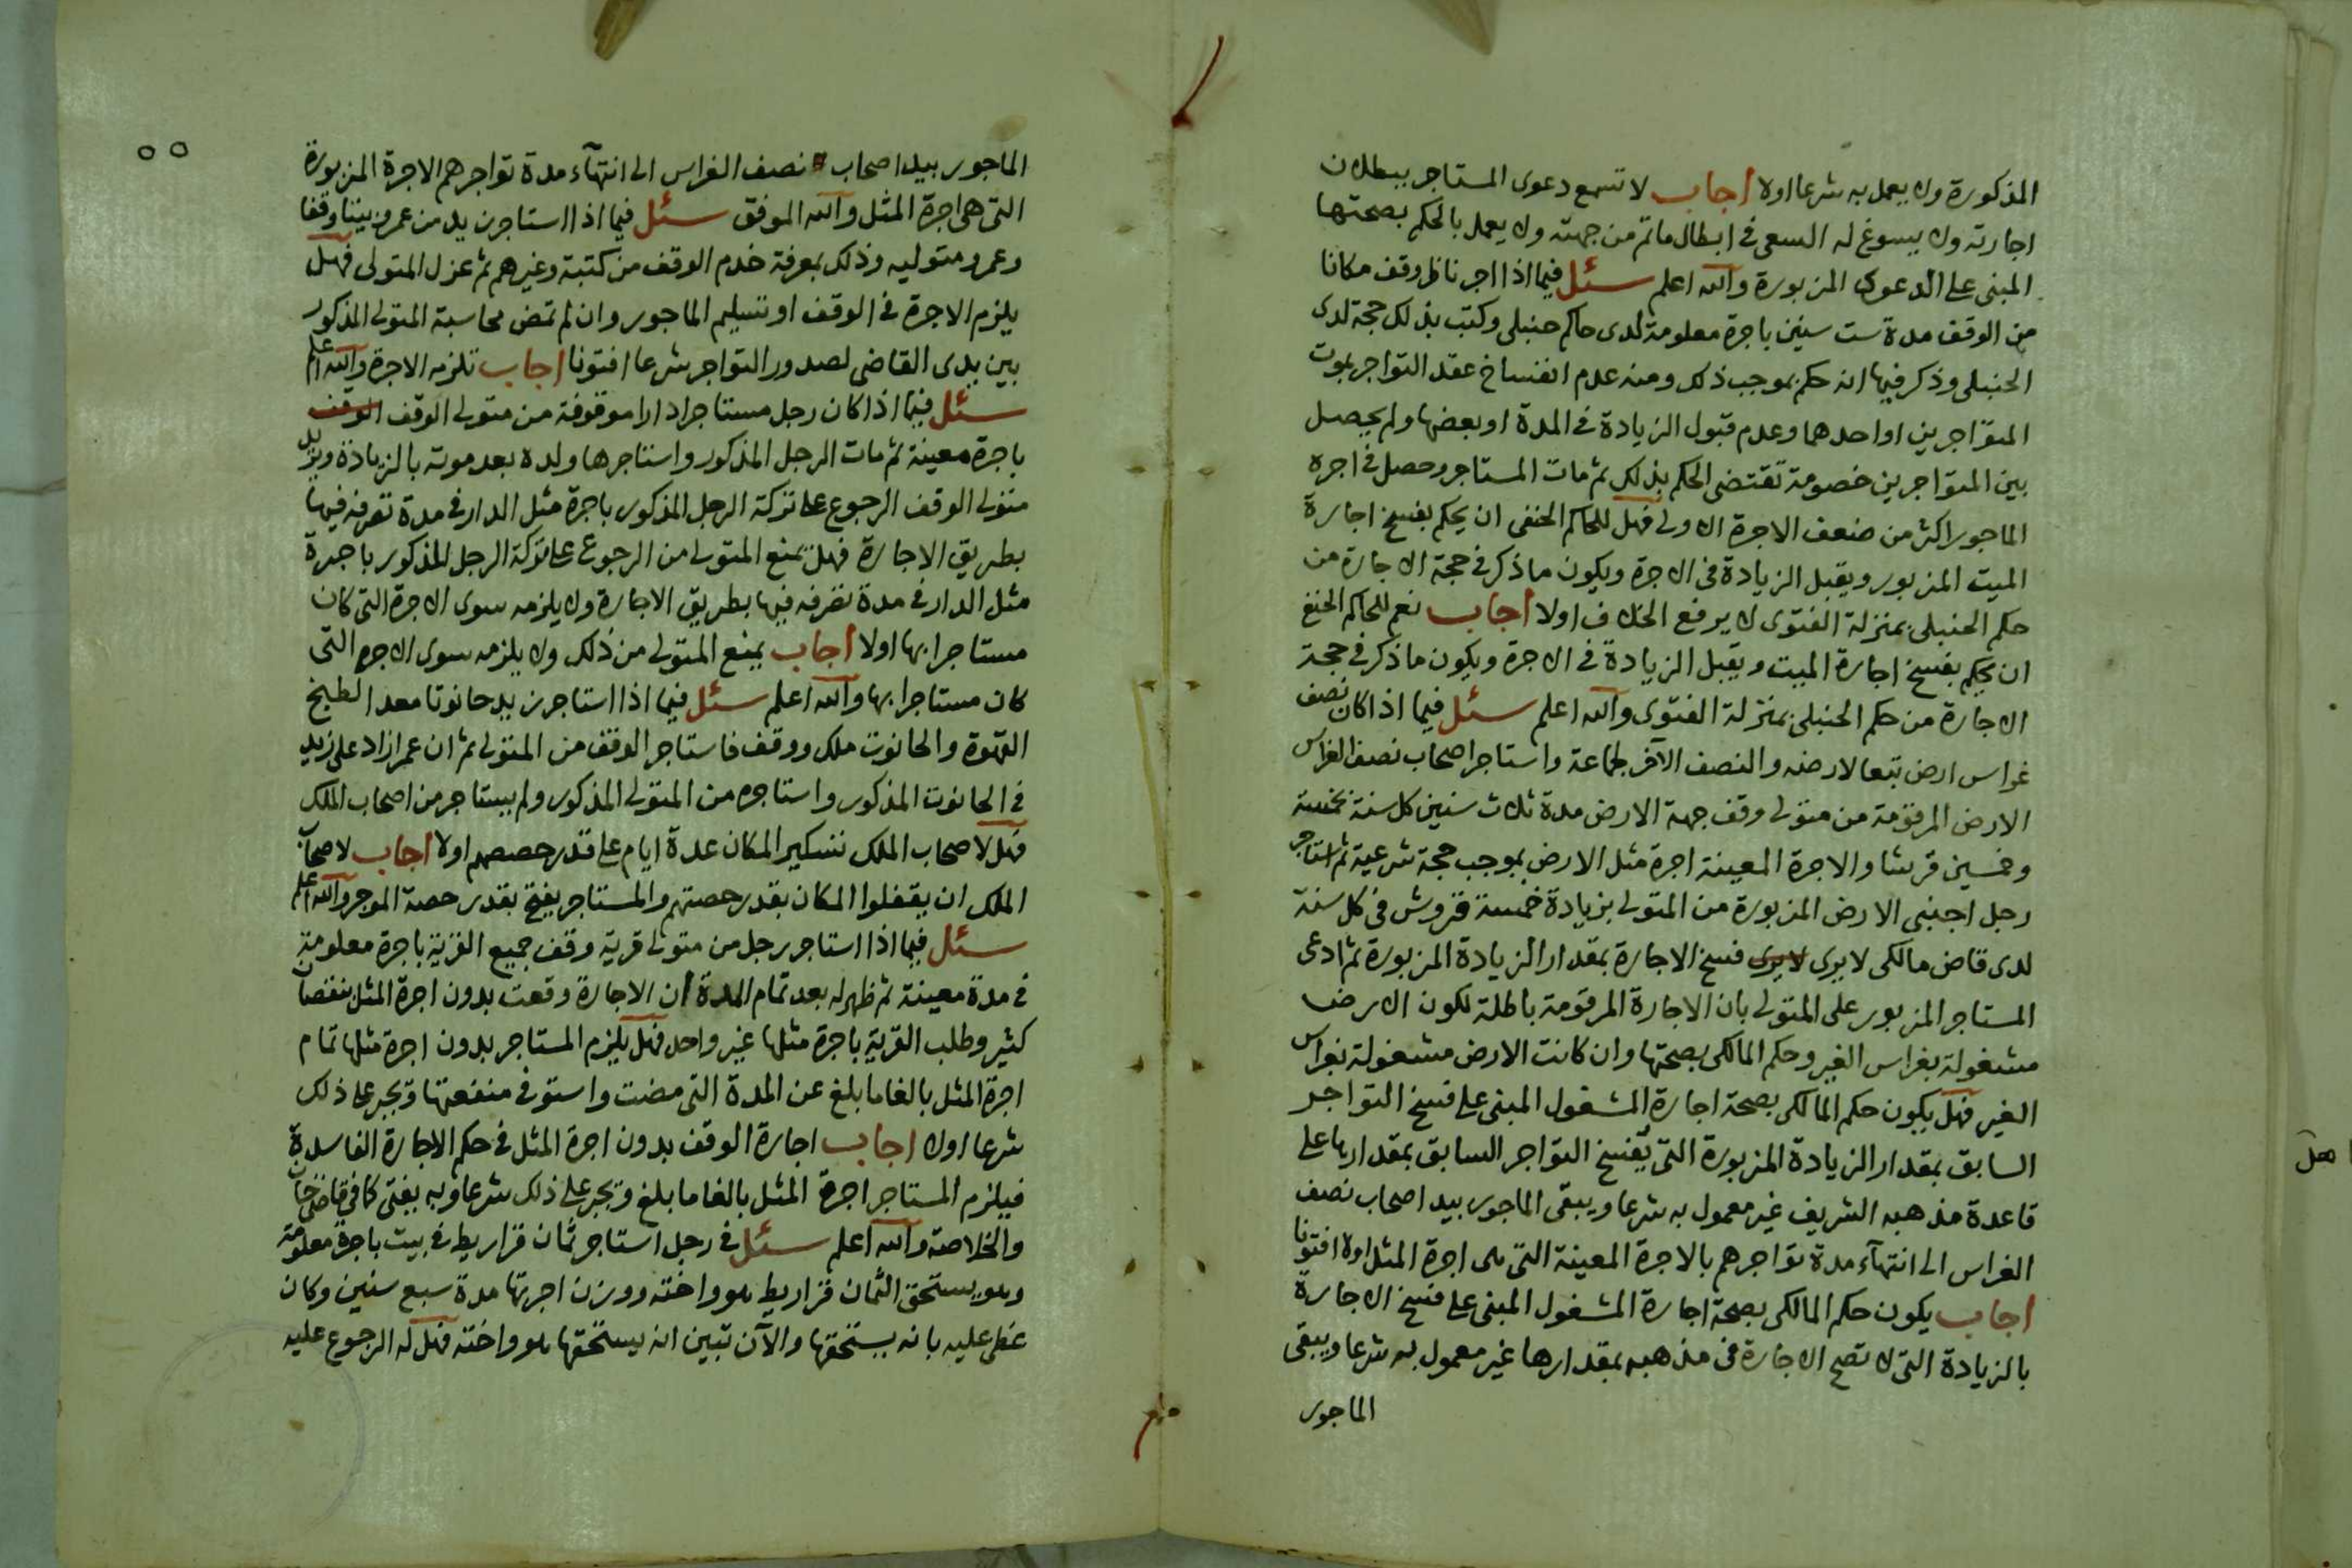 المذكورة ولا يعمل به شرعا اولا اجاب لا تسمع دعوى المستاجر ببطلان
اجارته ولا يسوغ له السعى فى ابطال ما تم من جهته ولا يعمل بالحكم بصحتها
المبنى على الدعوى المزبورة والله اعلم سئل فيما اذا اجر ناظر وقف مكانا
من الوقف مدة ست سنين باجرة معلومة لدى حاكم حنبلى وكتب بذلك حجة لدى
الحنبلى وذكر فيها انه حكم بموجب ذلك ومنه عدم انفساخ عقد التواجر بموت
المتواجرين او احدهما وعدم قبول الزيادة فى المدة او بعضها ولم يحصل
بين المتواجرين خصومة تقتضى الحكم بذلك ثم مات المستاجر وحصل فى اجرة
الماجور اكثر من ضعف الاجرة الاولى فهل للحاكم الحنفى ان يحكم بفسخ اجارة
الميت المزبور ويقبل الزيادة فى الاجرة ويكون ما ذكر فى حجة الاجارة من
حكم الحنبلى بمنزلة الفتوى لا يرفع الخلاف اولا اجاب نعم للحاكم الحنفى
ان يحكم بفسخ اجارة الميت ويقبل الزيادة فى الاجرة ويكون ما ذكر فى حجة
الاجارة من حكم الحنبلى بمنزلة الفتوى والله اعلم سئل فيما اذا كان نصف
غراس ارض تبعا لارضه والنصف الآخر لجماعة واستاجر اصحاب نصف الغراس
الارض المرقومة من متولى وقف جهة الارض مدة ثلاث سنين كل سنة بخمسة
وخمسين قرشا والاجرة المعينة اجرة مثل الارض بموجب حجة شرعية ثم استاجر
رجل اجنبى الارض المزبورة من المتولى بزيادة خمسة قروش فى كل سنة
لدى قاض مالكى لا يرى لا يرى فسخ الاجارة بمقدار الزيادة المزبورة ثم ادعى
المستاجر المزبور على المتولى بان الاجارة المرقومة باطلة لكون الارض
مشغولة بغراس الغير وحكم المالكى بصحتها وان كانت الارض مشغولة بغراس
الغير فهل يكون حكم المالكى بصحة اجارة المشغول المبنى على فسخ التواجر
السابق بمقدار الزيادة المزبورة التى يفسخ التواجر السابق بمقدارها على
قاعدة مذهبه الشريف غير معمول به شرعا ويبقى الماجور بيد اصحاب نصف
الغراس الى انتهآء مدة تواجرهم بالاجرة المعينة التى هى اجرة المثل اولا افتونا
اجاب يكون حكم المالكى بصحة اجارة المشغول المبنى على فسخ الاجارة
بالزيادة التى لا تصح الاجارة فى مذهبه بمقدارها غير معمول به شرعا ويبقى
الماجور
٥٥
الماجور بيد اصحاب نصف الغراس الى انتهآء مدة تواجرهم الاجرة المزبورة
التى هى اجرة المثل والله الموفق سئل فيما اذا استاجر زيد من عمرو بيتا وقفا
وعمرو متوليه وذلك بمعرفة خدم الوقف من كتبة وغيرهم ثم عزل المتولى فهل
يلزم الاجرة فى الوقف او تسليم الماجور وان لم تمض محاسبة المتولى المذكور
بين يدى القاضى لصدور التواجر شرعا افتونا اجاب تلزمه الاجرة والله اعلم
سئل فيما اذا كان رجل مستاجرا دارا موقوفة من متولى الوقف الوقف
باجرة معينة ثم مات الرجل المذكور واستاجرها ولده بعد موته بالزيادة ويريد
متولى الوقف الرجوع على تركة الرجل المذكور باجرة مثل الدار فى مدة تصرفه فيها
بطريق الاجارة فهل يمنع المتولى من الرجوع على تركة الرجل المذكور باجرة
مثل الدار فى مدة تصرفه فيها بطريق الاجارة ولا يلزمه سوى الاجرة التى كان
مستاجرا بها اولا اجاب يمنع المتولى من ذلك ولا يلزمه سوى الاجرة التى
كان مستاجرا بها والله اعلم سئل فيما اذا استاجر زيد حانوتا معدا لطبخ
القهوة والحانوت ملك ووقف فاستاجر الوقف من المتولى ثم ان عمرا زاد على زيد
فى الحانوت المذكور واستاجره من المتولى المذكور ولم يستاجر من اصحاب الملك
فهل لاصحاب الملك تسكير المكان عدة ايام على قدر حصصهم اولا اجاب لاصحاب
الملك ان يقفلوا المكان بقدر حصتهم والمستاجر يفتح بقدر حصة الموجر والله اعلم
سئل فيما اذا استاجر رجل من متولى قرية وقف جميع القرية باجرة معلومة
فى مدة معينة ثم ظهر له بعد تمام المدة ان الاجارة وقعت بدون اجرة المثل بنقصان
كثير وطلب القرية باجرة مثلها غير واحد فهل يلزم المستاجر بدون اجرة مثلها تمام
اجرة المثل بالغا ما بلغ عن المدة التى مضت واستوفى منفعتها ويجبر على ذلك
شرعا اولا اجاب اجارة الوقف بدون اجرة المثل فى حكم الاجارة الفاسدة
فيلزم المستاجر اجرة المثل بالغا ما بلغ ويجبر على ذلك شرعا وبه يفتى كما فى قاضى خان
والخلاصة والله اعلم سئل فى رجل استاجر ثمان قراريط فى بيت باجرة معلومة
وهو يستحق الثمان قراريط هو واخته ووزن اجرتها مدة سبع سنين وكان
غطى عليه بانه يستحقها والآن تبين انه يستحقها هو واخته فهل له الرجوع عليه